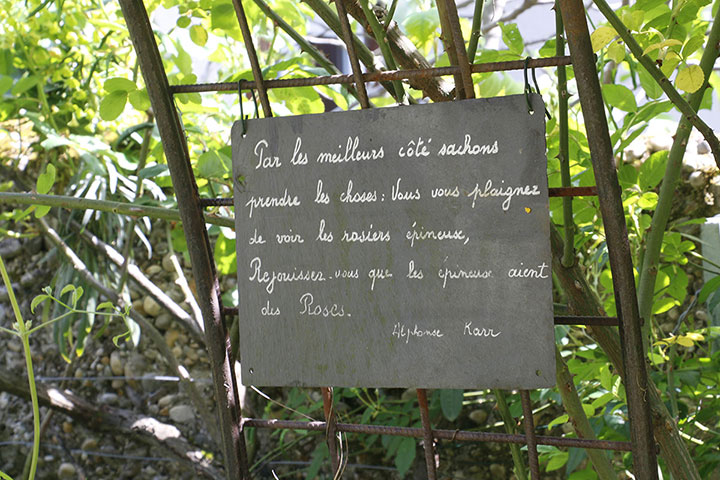 Par les meilleurs côté sachons
prendre les choses : Vous vous plaignez
de voir les rosiers épineux,
Rejouissez-vous que les épineux aient
des Roses.
Alphonse Karr